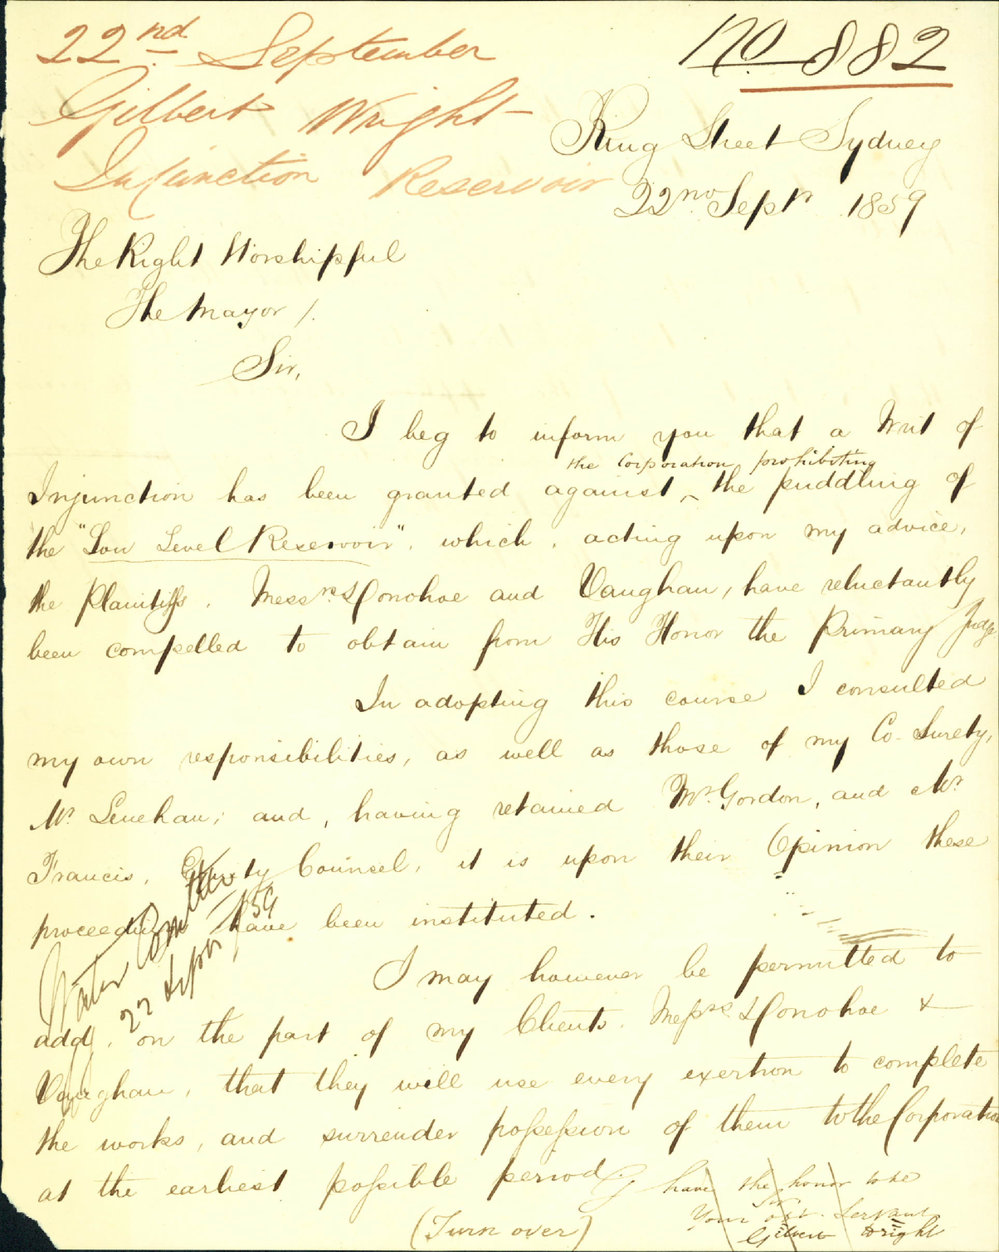 22nd September
Gilbert Wright
Injunction Reservoir
No 882
King Street Sydney
22nd Sept 1859
The Right Worshipful
The Mayor /.
Sir,
I beg to inform you that a Writ of
the Corporation prohibiting
Injunction has been granted against ‸ the puddling of
the "Low Level Reservoir", which, acting upon my advice,
the Plaintiffs, Messrs Donohoe and Vaughan, have reluctantly
been compelled to obtain from His Honor the Primary Judge
In adopting this course I consulted
my own responsibilities, as well as those of my Co-Surety,
Mr Lenehan; and, having retained Mr Gordon, and Mr
Francis, Equity Counsel, it is upon their Opinion these
proceedings have been instituted.
Water Committee
22 Sept /59
I may however be permitted to
add, on the part of my Clients, Messrs Donohoe &
Vaughan, that they will use every exertion to complete
the works, and surrender possession of them to the Corporation
at the earliest possible period.
I have the honor to be
Sir
Your obt. Servant
Gilbert Wright
(Turn over)